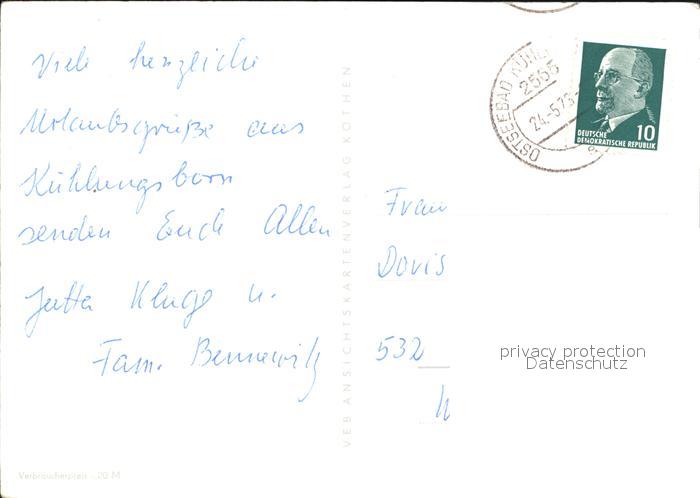 Viele herzliche
Urlaubsgrüße aus
Kühlungsborn
senden Euch Allen
Jutta Kluge u.
Fam. Bennewitz
Verbraucherpreis -,20 M
VEB ANSICHTSKARTENVERLAG KÖTHEN
OSTSEEBAD KÜHL
2565
24.-5.73-
DEUTSCHE 10
DEMOKRATISCHE REPUBLIK
Frau
Doris
532
privacy protection
Datenschutz